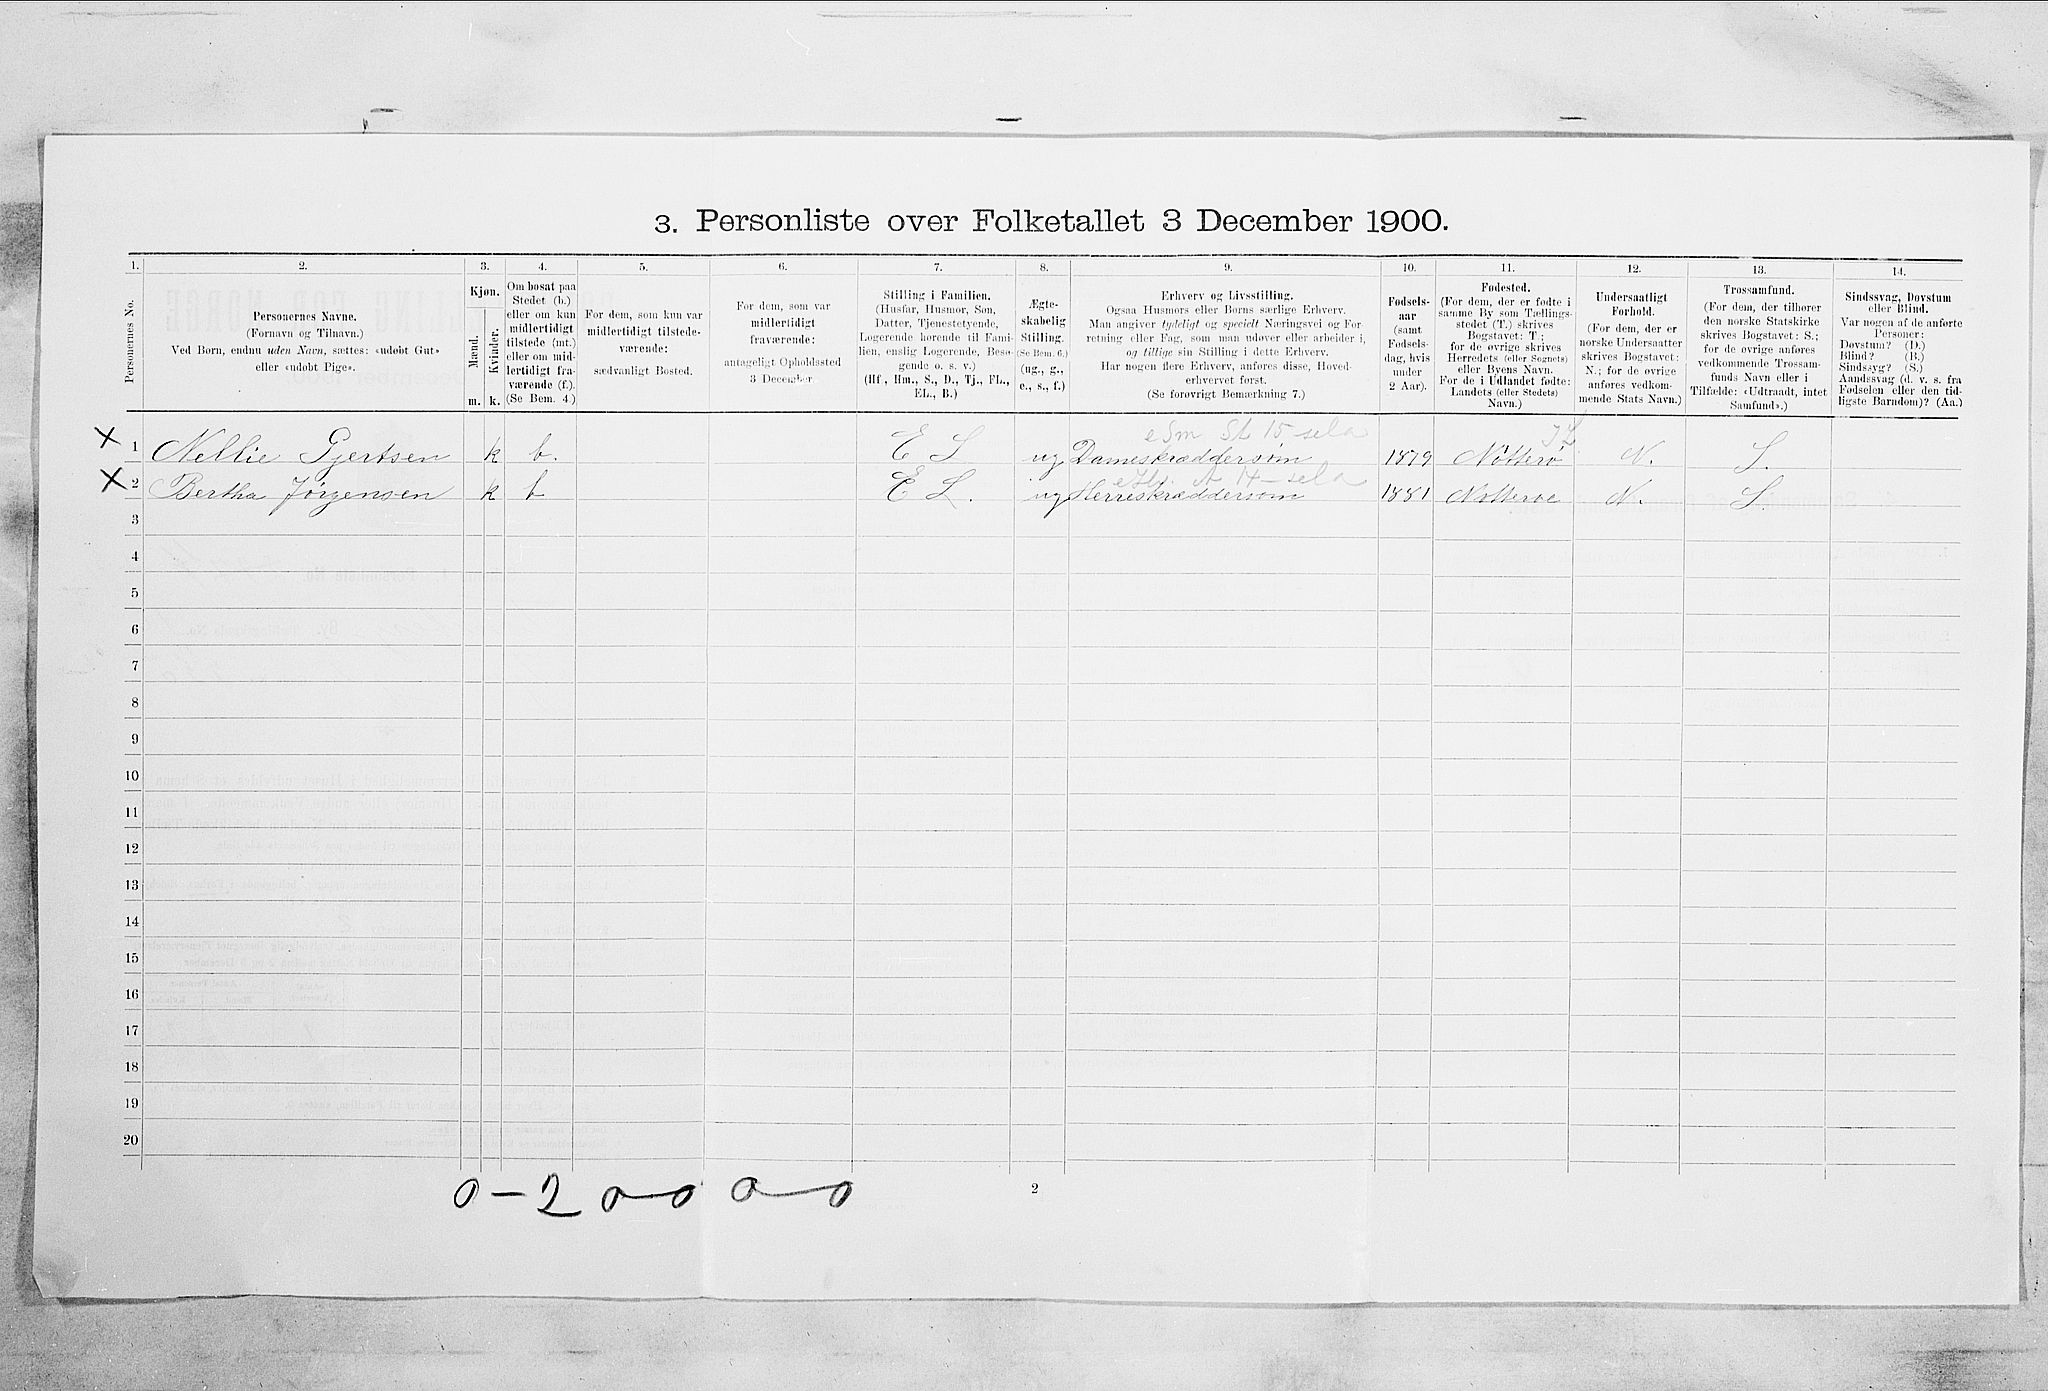 3. Personliste over Folketallet 3 December 1900.
1.
Personernes No.
2.
Personernes Navne.
(Fornavn og Tilnavn.)
Ved Børn, endnu uden Navn, sættes: «udøbt Gut»
eller «udøbt Pige».
3.
Kjøn.
Mænd.
Kvinder.
m. k.
4.
Om bosat paa
Stedet (b.)
eller om kun
midlertidigt
tilstede (mt.)
eller om mid-
lertidigt fra-
værende (f.).
(Se Bem. 4.)
5.
For dem, som kun var
midlertidigt tilstede-
værende:
sædvanligt Bosted.
6.
For dem, som var
midlertidigt
fraværende:
antageligt Opholdssted
3 December.
7.
Stilling i Familien.
(Husfar, Husmor, Søn,
Datter, Tjenestetyende,
Logerende hørende til Fami-
lien, enslig Logerende, Besø-
gende o. s. v.)
(Hf., Hm., S., D., Tj., FL.,
EL., B.)
8.
Ægte-
skabelig
Stilling.
(Se Bem. 6.)
(ug., g.,
e., s., f.)
9.
Erhverv og Livsstilling.
Ogsaa Husmors eller Børns særlige Erhverv.
Man angiver tydeligt og specielt Næringsvei og For
retning eller Fag, som man udøver eller arbeider i,
og tillige sin Stilling i dette Erhverv.
Har nogen flere Erhverv, anføres disse, Hoved-
erhvervet først.
(Se forøvrigt Bemærkning 7.)
10.
Fødsels-
aar
(samt
Fødsels-
dag, hvis
under
2 Aar).
11.
Fødested.
(For dem, der er fødte i
samme By som Tællings-
stedet (T.) skrives
Bogstavet: T.;
for de øvrige skrives
Herredets (eller Sognets)
eller Byens Navn.
For de i Udlandet fødte:
Landets (eller Stedets)
Navn.)
12.
Undersaatligt
Forhold.
(For dem, der er
norske Undersaatter
skrives Bogstavet:
N.; for de øvrige
anføres vedkom-
mende Stats Navn.)
13.
Trossamfund.
(For dem, der tilhører
den norske Statskirke
skrives Bogstavet: S.;
for de øvrige anføres
vedkommende Trossam-
funds Navn eller i
Tilfælde: «Udtraadt, intet
Samfund».)
14.
Sindssvag, Døvstum
eller Blind.
Var nogen af de anførte
Personer:
Døvstum? (D.)
Blind? (B.)
Sindssyg? (S.)
Aandssvag (d. v. s. fra
Fødselen eller den tid-
ligste Barndom)? (Aa.)
× 1 Nellie Gjertsen k b. E L ug Dameskræddersøm 1879 Nötterö N. S.
× 2 Bertha Jörgensen k b E L. ug Herreskræddersøm 1881 Nötteröe N. S.
3
4
5
6
7
8
9
10
11
12
13
14
15
16
17
18
19
20
0 – 2 0 – 0 0 – 0
2